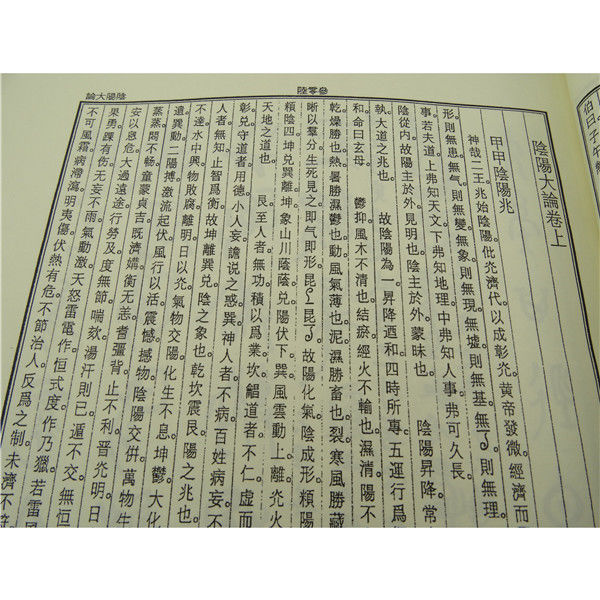 參零陸
陰陽大論
陰陽大論卷上
甲甲陰陽兆
神哉二王兆始陰陽。化炁濟代。以成彰炁。黃帝發微。經濟而
形。則無患。無气。則無變。無象。則無現。無墟。則無基。無則無理。
事若夫道。上弗知天文。下弗知地理。中弗知人事。弗可久長。
陰陽昇降。常
陰從內。故陽主於外。見明也。陰主於外。蒙昧也。
執大道之兆也。故陰陽為一昇降。迺和四時所專。五運行爲
和命曰玄母。鬱抑風木不清也。結瘀經火不輸也。濕清陽不
乾燥勝也。熱暑勝濕鬱也。動風氣薄也。泥濕勝畜也。裂寒風勝藏
晰以羣分。生死見之。即气即形。昆昆。故陽化氣。陰成形。頪陽
頪陰四坤兌巽離。坤象山川。蔭蔭兌陽伏下。巽風雲動上。離炁火
天地之道也。艮至人者無功。積以爲業。坎鯧道者不仁。虛而
彰。兌守道者用德。小人妄譫說之惑。巽神人者不病。百姓病妄不
人者無知。止智爲衡。故坤離巽兌。陰之象也。乾坎震艮。陽之兆也。
不達水中興。物敗腐離。明日以炁。氣物交陽。化生不息。坤鬱。大化
遺巽動。二陽搏激流起伏。風行以活。震憾。撼物。陰陽交倂。萬物生
蒸蒸。悶不畅。童蒙貞吉。既濟媾衡。无善。耆彊背。止不利。晉炁。明日
安以息。大過遠途行勞。及度無節。喘欬。湯汗則已。遁不交。無恒
果勇踝有伤。无妄不雨。氣動激。天怒雷電作。恒式度。作乃獵。若雷
不可風霜。病滯瀉。明夷傷。伏熱有危。不節治人。反爲之制。未濟不
伯曰子午